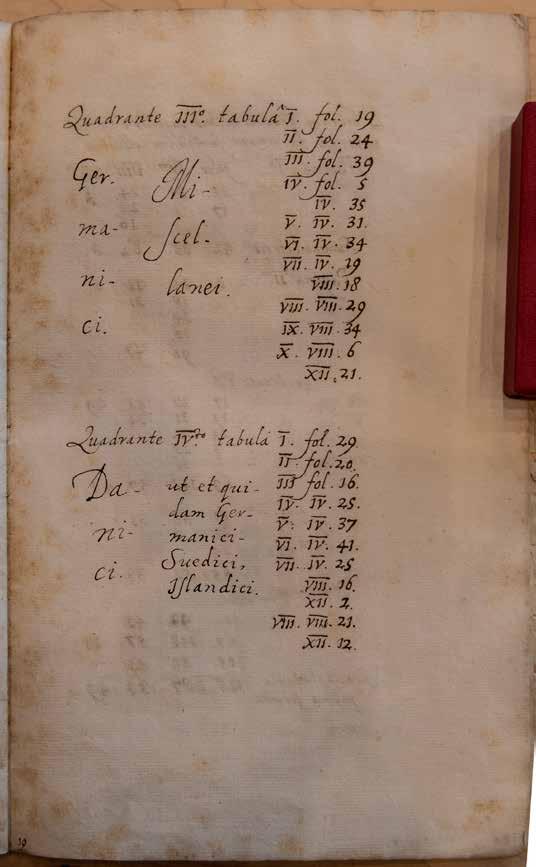 Quadrante III°. tabulâ I. fol. 19
II. fol. 24
Ger- Mi- III. fol. 39
IV. fol. 5
IV. 35
ma- scel- V. IV. 31.
VI. IV. 34
VII. IV. 19
ni- lanei. VIII. 18
VIII. VIII. 29
ci. IX. VIII. 34
X. VIII. 6
XII. 21.
Quadrante IVto tabulâ I. fol. 29.
II. fol. 20.
Da- ut et qui- III fol. 16.
dam Ger- IV. IV. 25.
ni- manici- V. IV. 37
VI. IV. 41.
ci. Suedici, VII. IV. 25
Islandici. VIII. 16
XII. 2.
VIII. VIII. 21.
XII. 12.
19